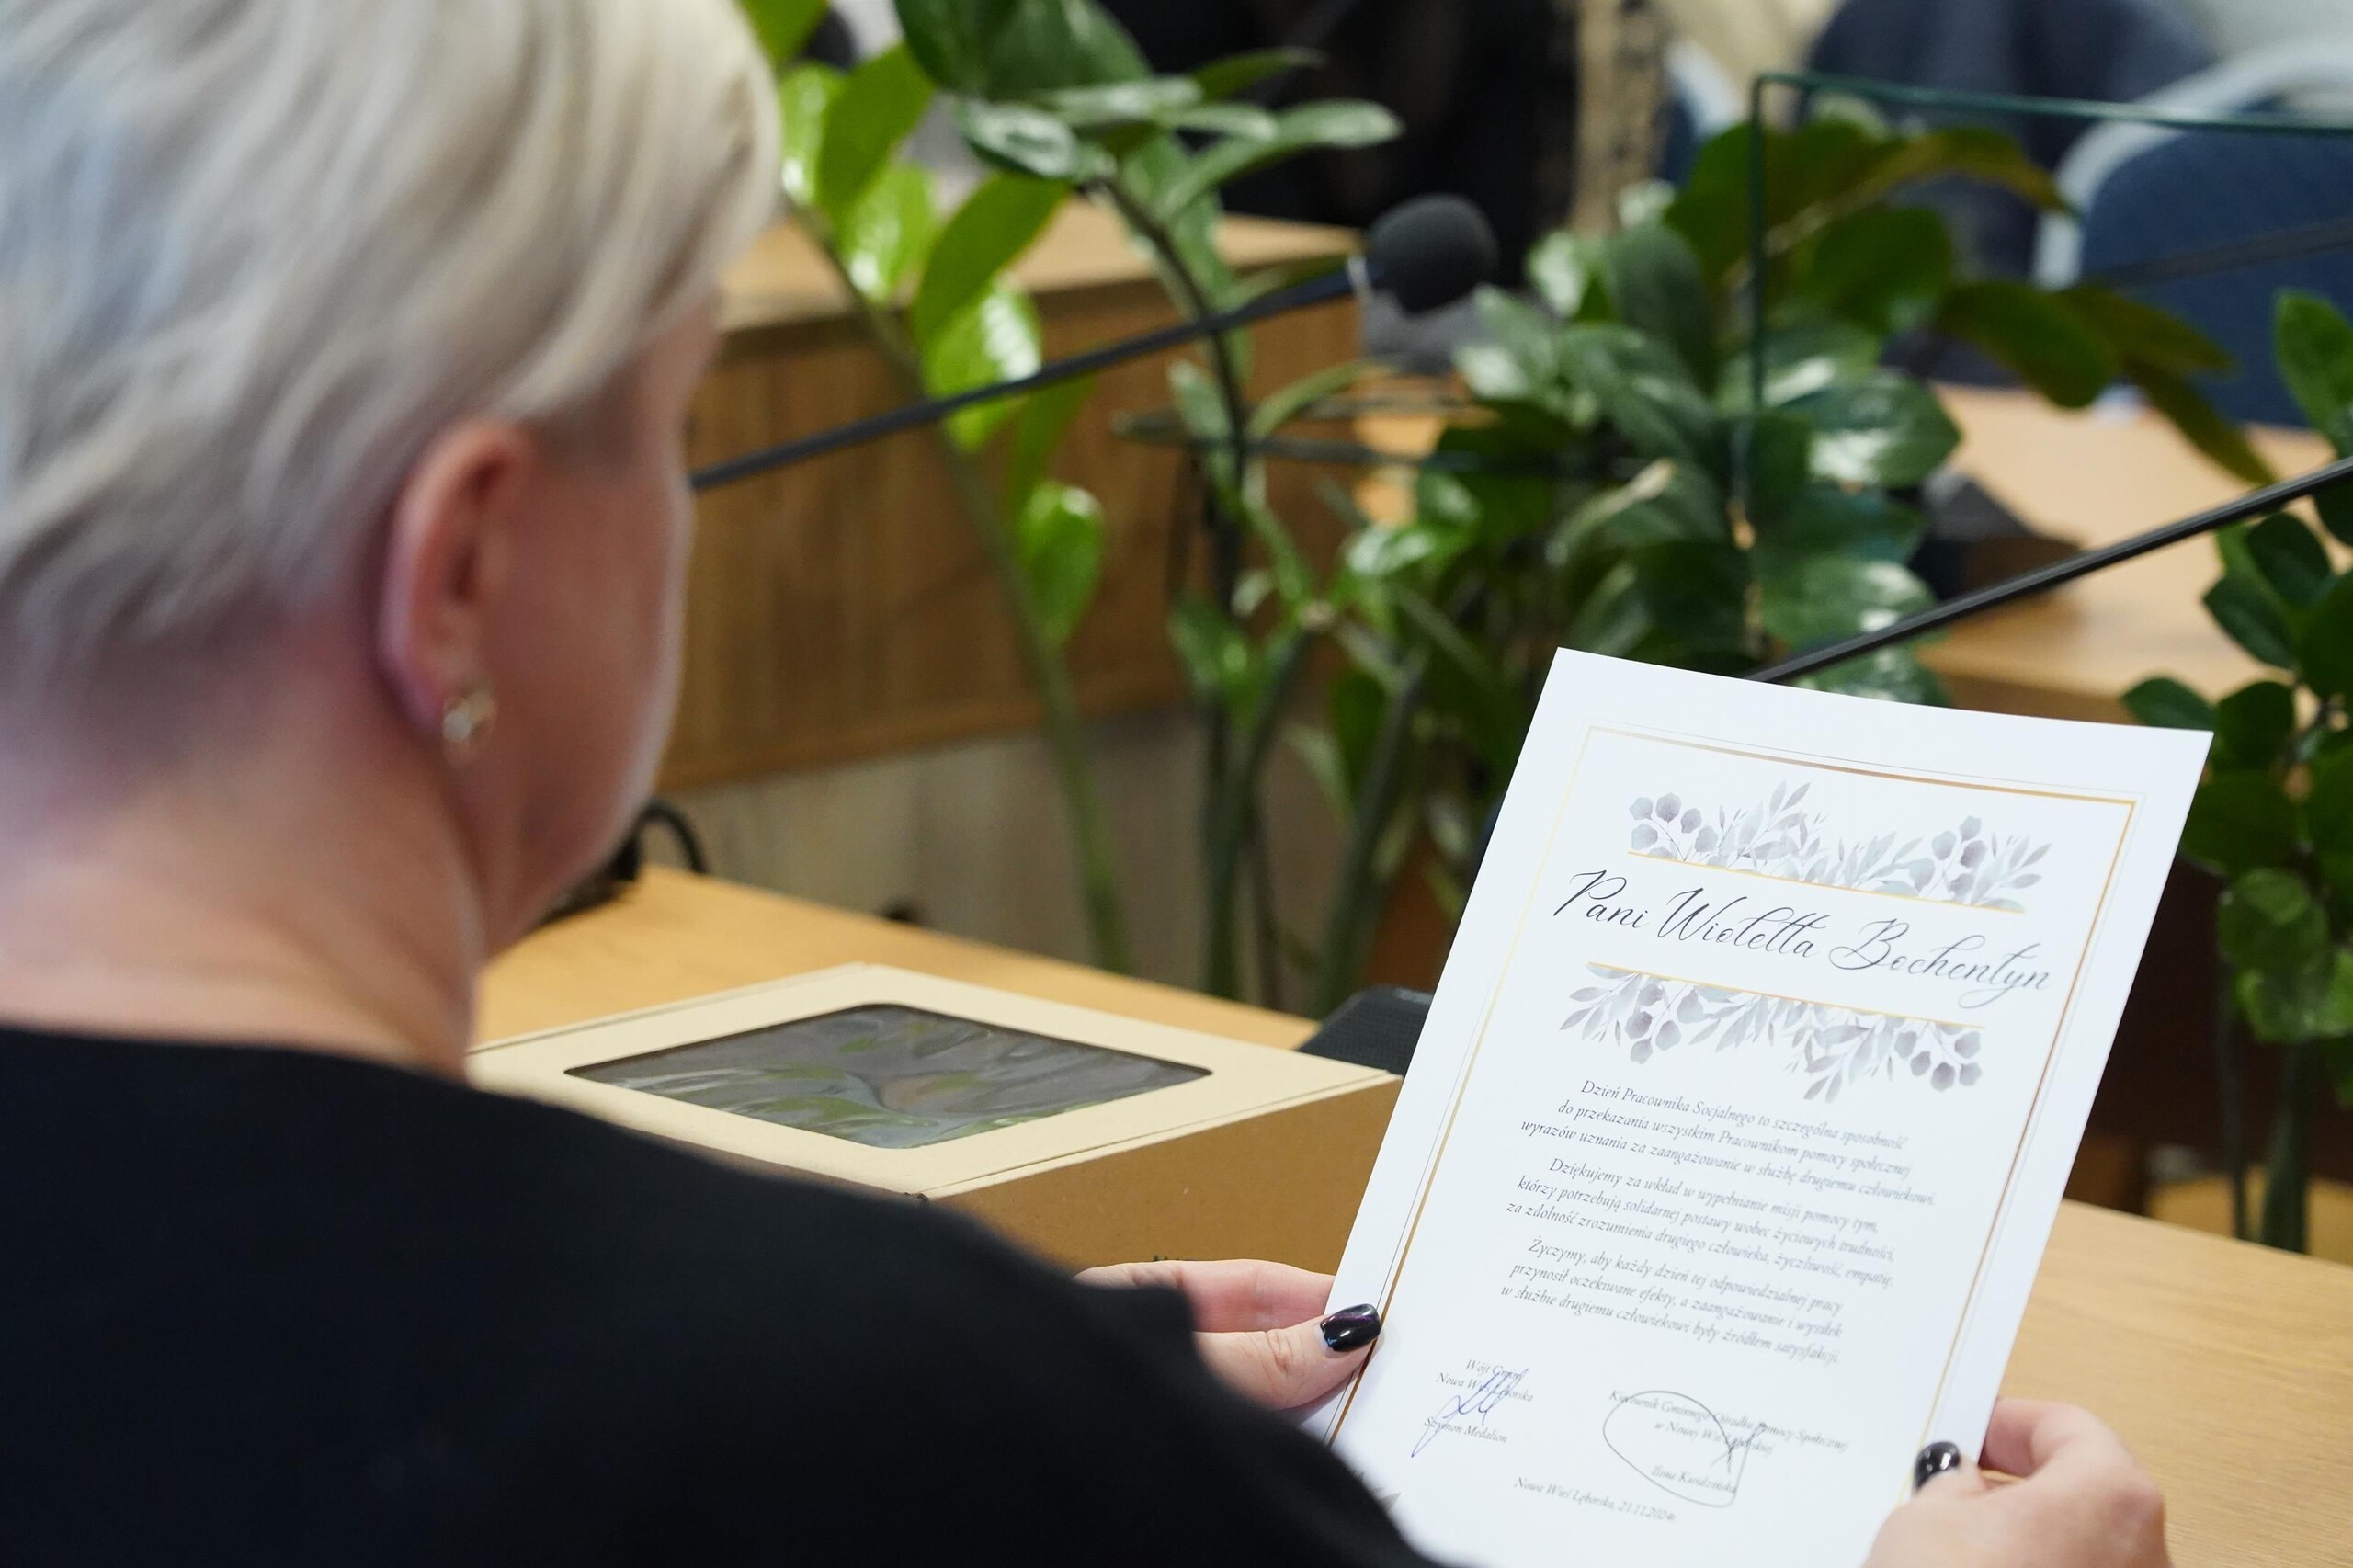 Pani Wioletta Bochentyn
Dzień Pracownika Socjalnego to szczególna sposobność
do przekazania wszystkim Pracownikom pomocy społecznej
wyrazów uznania za zaangażowanie w służbę drugiemu człowiekowi.
Dziękujemy za wkład w wypełnianie misji pomocy tym,
którzy potrzebują solidarnej postawy wobec życiowych trudności,
za zdolność zrozumienia drugiego człowieka, życzliwość, empatię.
Życzymy, aby każdy dzień tej odpowiedzialnej pracy
przynosił oczekiwane efekty, a zaangażowanie i wysiłek
w służbie drugiemu człowiekowi były źródłem satysfakcji.
Wójt Gminy
Nowa Wieś Lęborska
Szymon Medalion
Kierownik Gminnego Ośrodka Pomocy Społecznej
w Nowej Wsi Lęborskiej
Ilona
Nowa Wieś Lęborska, 21.11.2024r